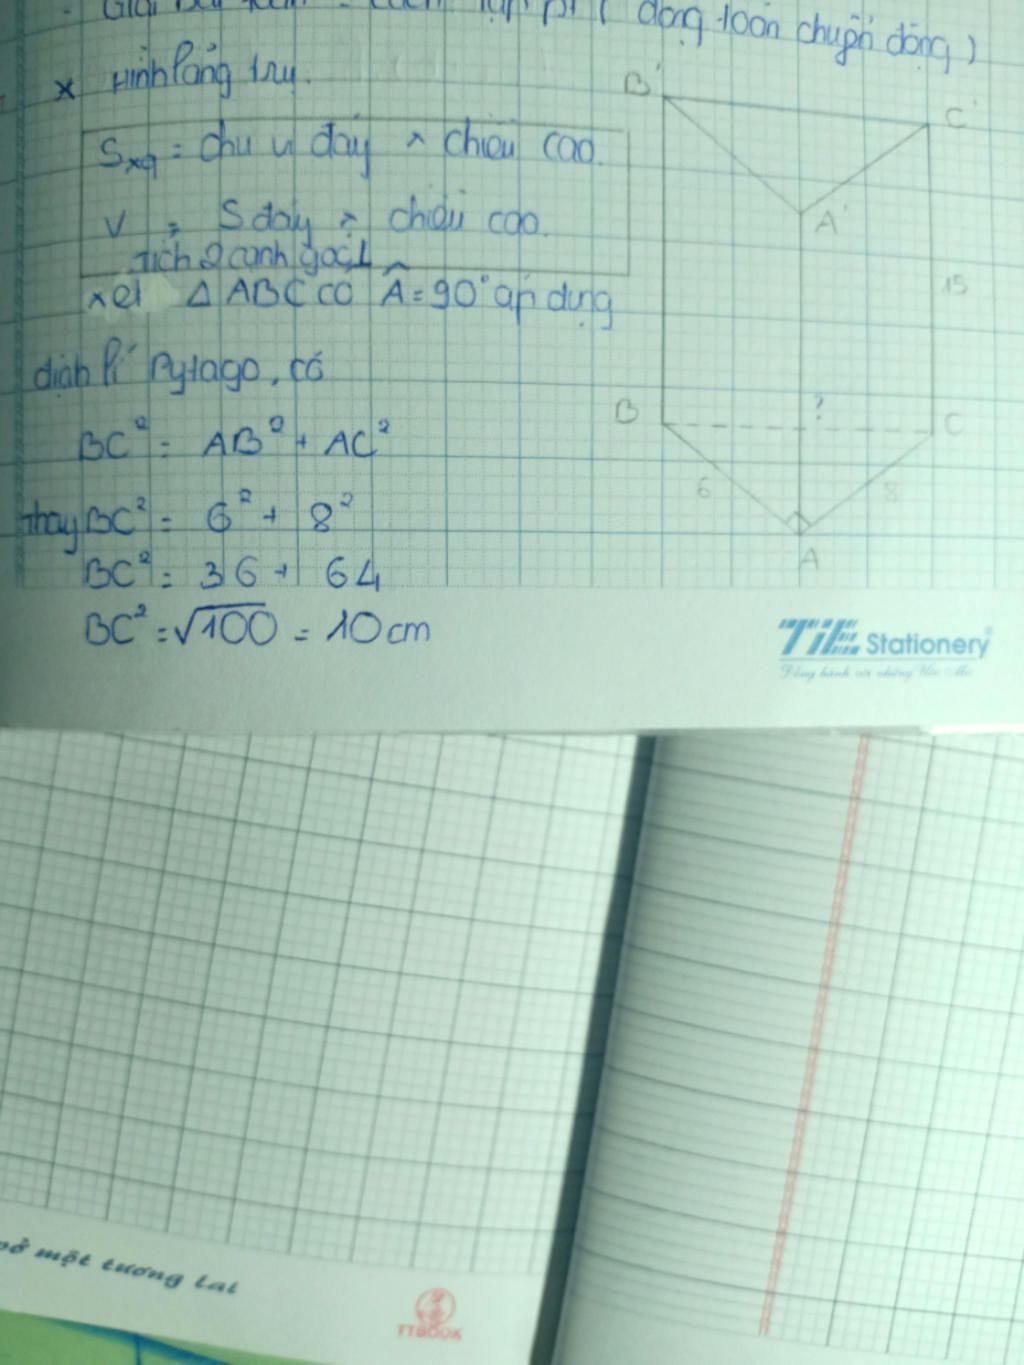 - Giải bài toán = cách lập pt ( dạng toán chuyển động )
* Hình lăng trụ.
Sxq = chu vi đáy × chiều cao.
V = S đáy × chiều cao.
Tích 2 cạnh góc ⊥
xét Δ ABC có Â = 90° áp dụng
định lí Pytago, có
BC² = AB² + AC²
Thay BC² = 6² + 8²
BC² = 36 + 64
BC² = √100 = 10 cm
B'
C'
A'
15
B
?
C
6
8
A
TiE Stationery
Đồng hành với những Ước Mơ
vở một tương lai
TTBOOK